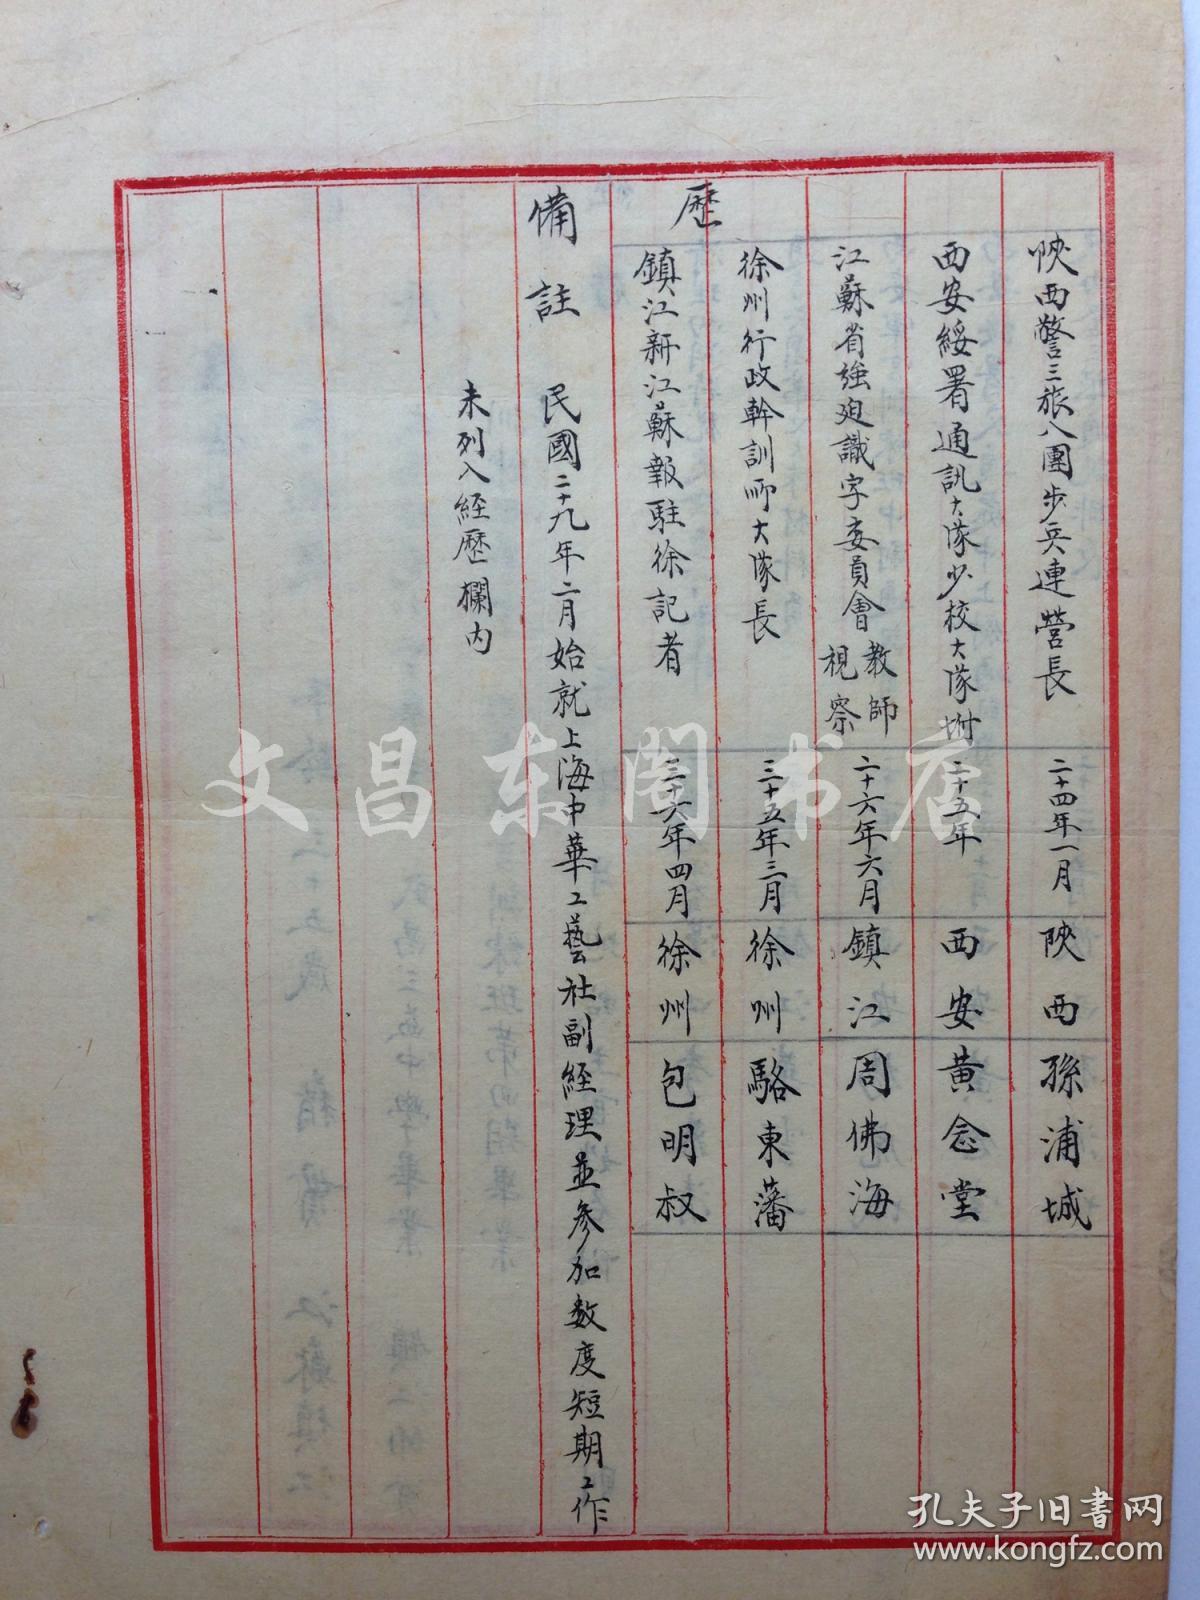 歷
陝西警三旅八團步兵連營長 二十四年一月 陝西 孫浦城
西安綏署通訊大隊少校大隊坿 二十五年 西安 黃念堂
江蘇省強廹識字委員會教師視察 二十六年六月 鎮江 周佛海
徐州行政幹訓所大隊長 三十五年三月 徐州 駱東藩
鎮江新江蘇報駐徐記者 三十六年四月 徐州 包明叔
備註 民國二十九年二月始就上海中華工藝社副經理並參加数度短期工作
未列入經歷欄內
文昌东阁书店
孔夫子旧书网
www.kongfz.com